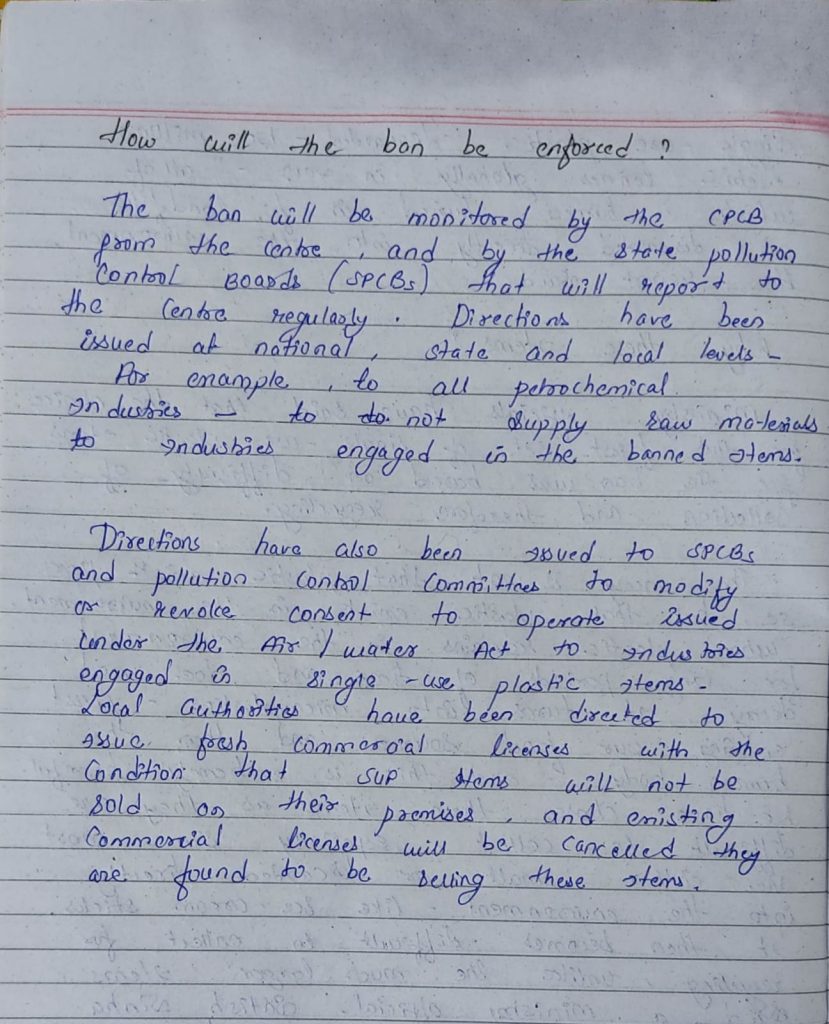 How will the ban be enforced ?
The ban will be monitored by the CPCB
from the Centre , and by the State pollution
Control Boards (SPCBs) that will report to
the Centre regularly . Directions have been
issued at national , state and local levels -
For example , to all petrochemical
Industries - to do not supply raw materials
to Industries engaged in the banned Items.
Directions have also been Issued to SPCBs
and pollution Control Committees to modify
or revoke consent to operate issued
under the Air / water Act to Industries
engaged in single -use plastic Items -
Local authorities have been directed to
Issue fresh commercial licenses with the
Condition that SUP Items will not be
Sold on their premises , and existing
Commercial licenses will be cancelled they
are found to be selling these Items .